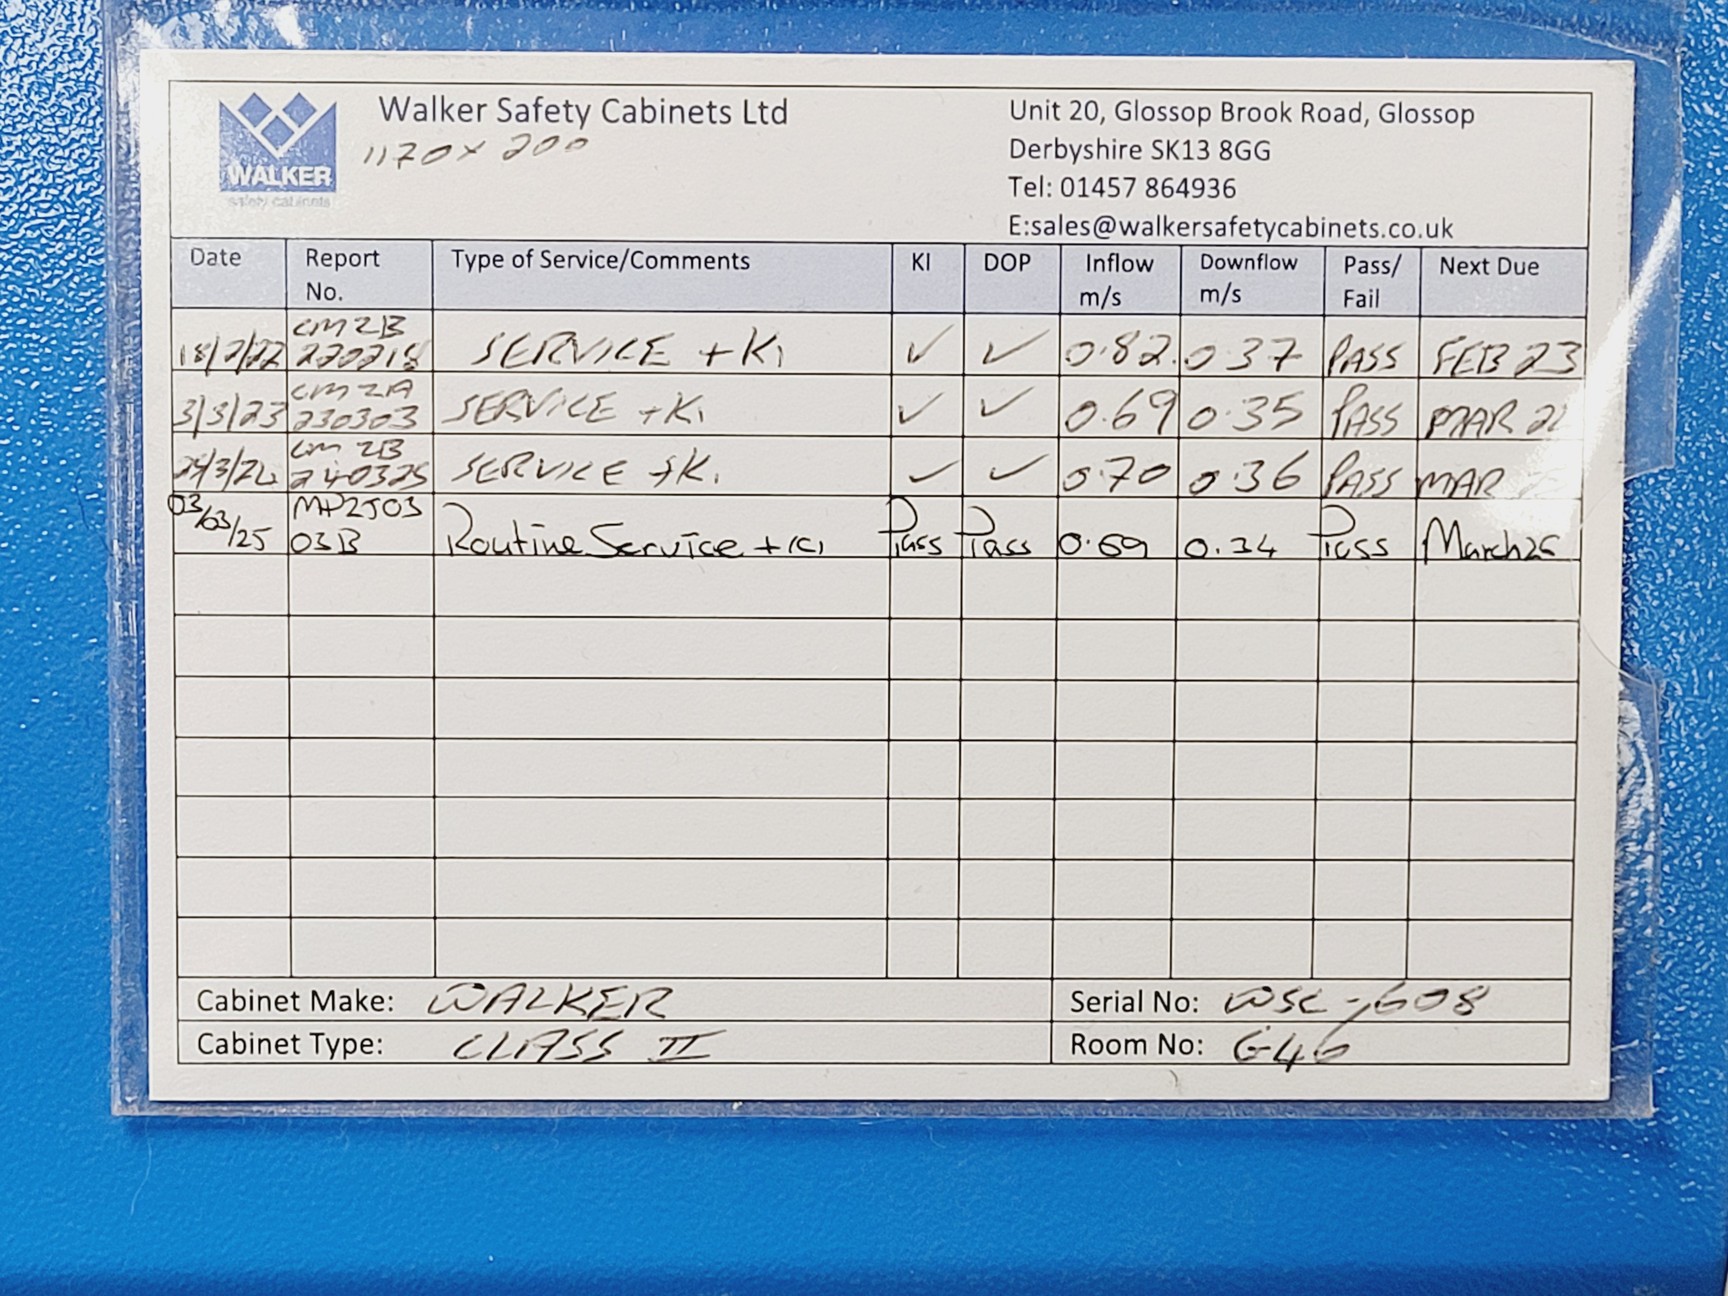 Walker Safety Cabinets Ltd
1170 x 200
WALKER
safety cabinets
Unit 20, Glossop Brook Road, Glossop
Derbyshire SK13 8GG
Tel: 01457 864936
E:sales@walkersafetycabinets.co.uk
Date Report No. Type of Service/Comments KI DOP Inflow m/s Downflow m/s Pass/ Fail Next Due
18/2/22 CM2B 220218 SERVICE + KI ✓ ✓ 0.82 0.37 PASS FEB 23
3/3/23 CM2A 230303 SERVICE + KI ✓ ✓ 0.69 0.35 PASS MAR
25/3/24 CM2B 240325 SERVICE + KI ✓ ✓ 0.70 0.36 PASS MAR
03/03/25 MP2503 03B Routine Service + KI Pass Pass 0.69 0.34 Pass March 26
Cabinet Make: WALKER Serial No: WSC-608
Cabinet Type: CLASS II Room No: G46